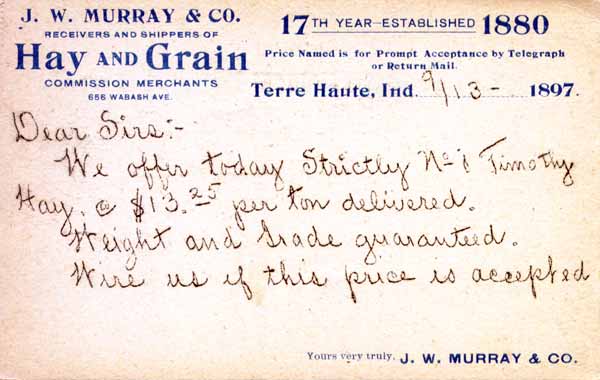 J. W. MURRAY & CO.
RECEIVERS AND SHIPPERS OF
HAY AND GRAIN
COMMISSION MERCHANTS
656 WABASH AVE.
17TH YEAR—ESTABLISHED 1880
Price Named is for Prompt Acceptance by Telegraph
or Return Mail.
Terre Haute, Ind. 9/13- 1897.
Dear Sirs:-
We offer today Strictly No. 1 Timothy
Hay, @ $13.25 per ton delivered.
Weight and Grade guaranteed.
Wire us if this price is accepted
Yours very truly, J. W. MURRAY & CO.